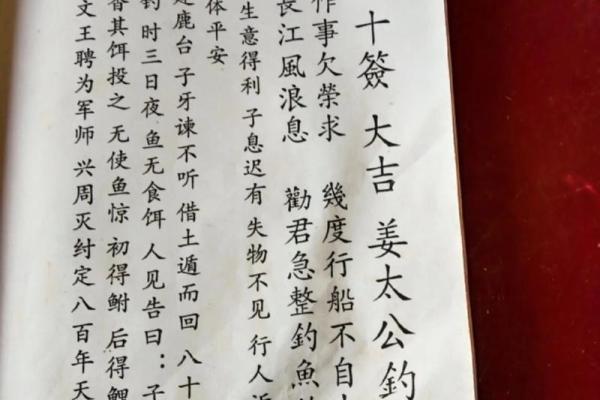 十簽 大吉 姜太公釣
作事欠榮求 幾度行船不自
長江風浪息 勸君急整釣魚
生意得利 子息迟有 失物不见 行人
体平安
鹿台 子牙谏不听 借土遁而回 八十
钓时三日夜 鱼无食饵 人见告曰：子
香其饵投之 无使鱼惊 初得鲋 后得鲤
文王聘为军师 兴周灭纣定八百年天